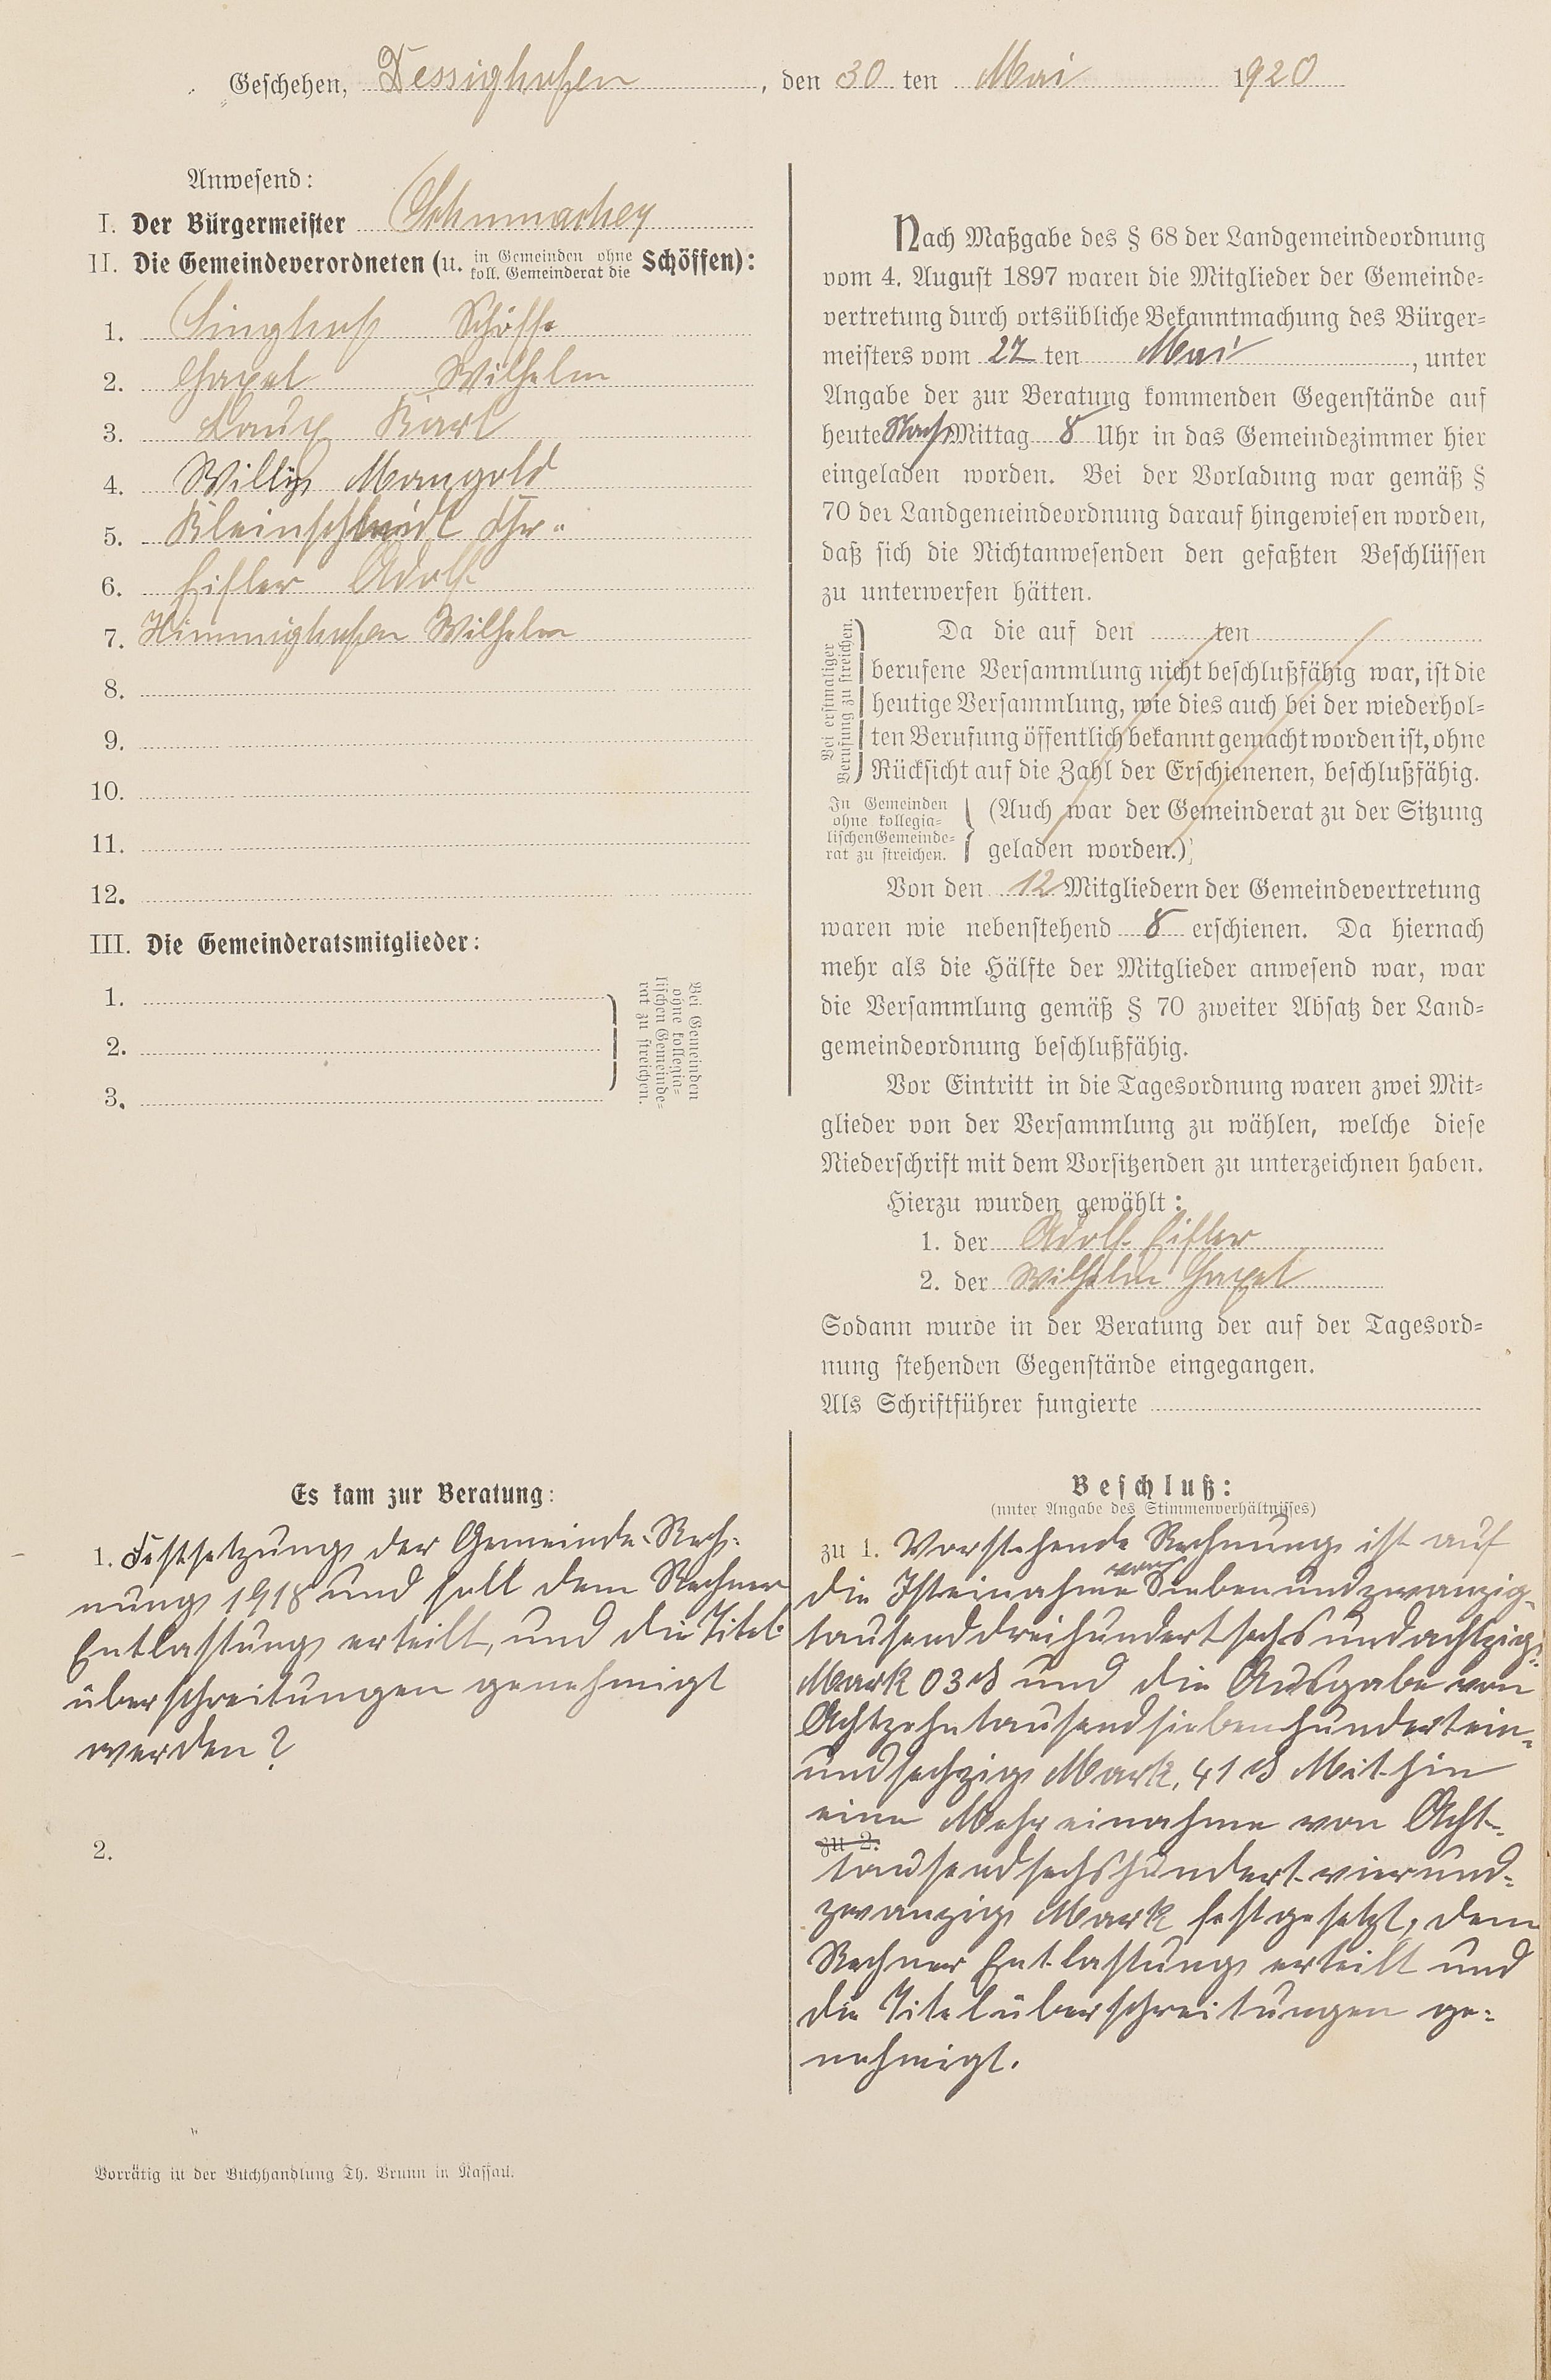 Geschehen, Dessighofen, den 30 ten Mai 1920
Anwesend:
I. Der Bürgermeister Schumacher
II. Die Gemeindeverordneten (u. in Gemeinden ohne koll. Gemeinderat die Schöffen):
1. Singhof Schöffe
2. Gapel Wilhelm
3. Laux Karl
4. Willy Mangold
5. Kleinschmidt Chr.
6. Eisler Adolf
7. Himmighofen Wilhelm
8.
9.
10.
11.
12.
III. Die Gemeinderatsmitglieder:
1.
2.
3.
Bei Gemeinden
ohne kollegia-
lischen Gemeinde-
rat zu streichen.
Nach Maßgabe des § 68 der Landgemeindeordnung
vom 4. August 1897 waren die Mitglieder der Gemeinde-
vertretung durch ortsübliche Bekanntmachung des Bürger-
meisters vom 27 ten Mai, unter
Angabe der zur Beratung kommenden Gegenstände auf
heute Nach Mittag 8 Uhr in das Gemeindezimmer hier
eingeladen worden. Bei der Vorladung war gemäß §
70 der Landgemeindeordnung darauf hingewiesen worden,
daß sich die Nichtanwesenden den gefaßten Beschlüssen
zu unterwerfen hätten.
Bei erstmaliger
Berufung zu streichen.
Da die auf den ten
berufene Versammlung nicht beschlußfähig war, ist die
heutige Versammlung, wie dies auch bei der wiederhol-
ten Berufung öffentlich bekannt gemacht worden ist, ohne
Rücksicht auf die Zahl der Erschienenen, beschlußfähig.
In Gemeinden
ohne kollegia-
lischen Gemeinde-
rat zu streichen.
(Auch war der Gemeinderat zu der Sitzung
geladen worden.)
Von den 12 Mitgliedern der Gemeindevertretung
waren wie nebenstehend 8 erschienen. Da hiernach
mehr als die Hälfte der Mitglieder anwesend war, war
die Versammlung gemäß § 70 zweiter Absatz der Land-
gemeindeordnung beschlußfähig.
Vor Eintritt in die Tagesordnung waren zwei Mit-
glieder von der Versammlung zu wählen, welche diese
Niederschrift mit dem Vorsitzenden zu unterzeichnen haben.
Hierzu wurden gewählt:
1. der Adolf Eisler
2. der Wilhelm Gapel
Sodann wurde in der Beratung der auf der Tagesord-
nung stehenden Gegenstände eingegangen.
Als Schriftführer fungierte
Es kam zur Beratung:
1. Festsetzung der Gemeinde-Rech-
nung 1918 und soll dem Rechner
Entlastung erteilt, und die Titel-
überschreitungen genehmigt
werden?
2.
Beschluß:
(unter Angabe des Stimmenverhältnisses)
zu 1. Vorstehende Rechnung ist auf
die Isteinahme von Siebenundzwanzig-
tausenddreihundertsechsundachtzig
Mark 03 ₰ und die Ausgabe von
Achtzehntausendsiebenhundertein-
undsechzig Mark, 41 ₰ Mithin
eine Mehreinahme von Acht-
zu 2.
tausendsechshundertvierund-
zwanzig Mark festgesetzt, dem
Rechner Entlastung erteilt und
die Titelüberschreitungen ge-
nehmigt.
Vorrätig in der Buchhandlung Th. Brunn in Nassau.